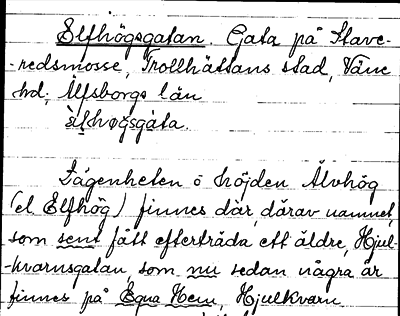 Elfhögsgatan. Gata på Stave-
-redsmosse, Trollhättans stad, Väne
hd, Älfsborgs län
Lägenheten o höjden Älvhög
(el. Elfhög) finnes där, därav namnet,
som sent fått efterträda ett äldre, Hjul-
-kvarnsgatan, som nu sedan några år
finnes på Egna Hem, Hjulkvarn.